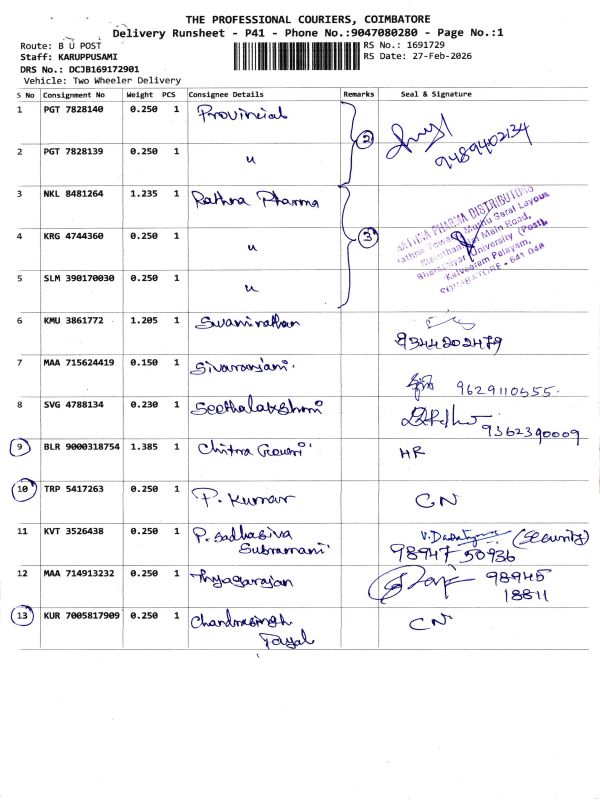 THE PROFESSIONAL COURIERS, COIMBATORE
Delivery Runsheet - P41 - Phone No.:9047080280 - Page No.:1
Route: B U POST
RS No.: 1691729
Staff: KARUPPUSAMI
RS Date: 27-Feb-2026
DRS No.: DCJB169172901
Vehicle: Two Wheeler Delivery
S No Consignment No Weight PCS Consignee Details Remarks Seal & Signature
1 PGT 7828140 0.250 1 Provincial
2 9489402134
2 PGT 7828139 0.250 1 "
3 NKL 8481264 1.235 1 Rathna Pharma
RATHNA PHARMA DISTRIBUTORS
Bharathiyar University (Post),
Kalveeram Palayam,
COIMBATORE - 641 046
4 KRG 4744360 0.250 1 " 3
5 SLM 390170030 0.250 1 "
6 KMU 3861772 1.205 1 Swaminathan
9344202479
7 MAA 715624419 0.150 1 Sivaranjani
9629110555
8 SVG 4788134 0.230 1 Seethalakshmi
9362390009
9 BLR 9000318754 1.385 1 Chitra Gowri HR
10 TRP 5417263 0.250 1 P. Kumar CN
11 KVT 3526438 0.250 1 P. Sadhasiva (Security)
Subramani 98947 50936
12 MAA 714913232 0.250 1 Thyagarajan 98945
18811
13 KUR 7005817909 0.250 1 Chandrasingh CN
Tayal